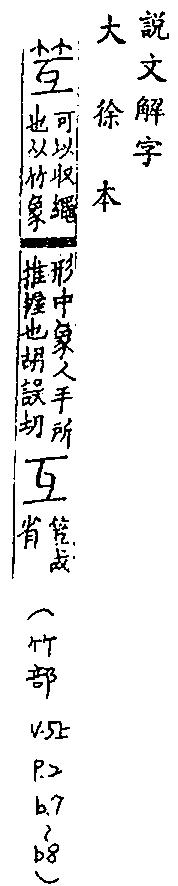 説文解字
大徐本
䇘 可以収繩
也从竹象
形中象人手所
推握也胡誤切
互 䇘或
省
(竹部 V.5上 P.2 b.7~b8)